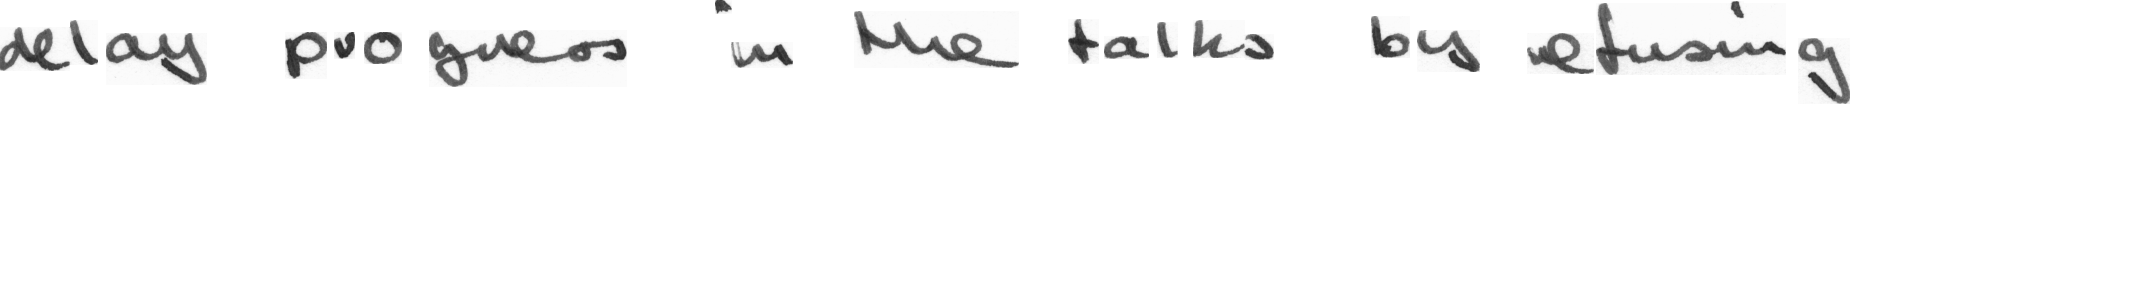 delay progress in the talks by refusing